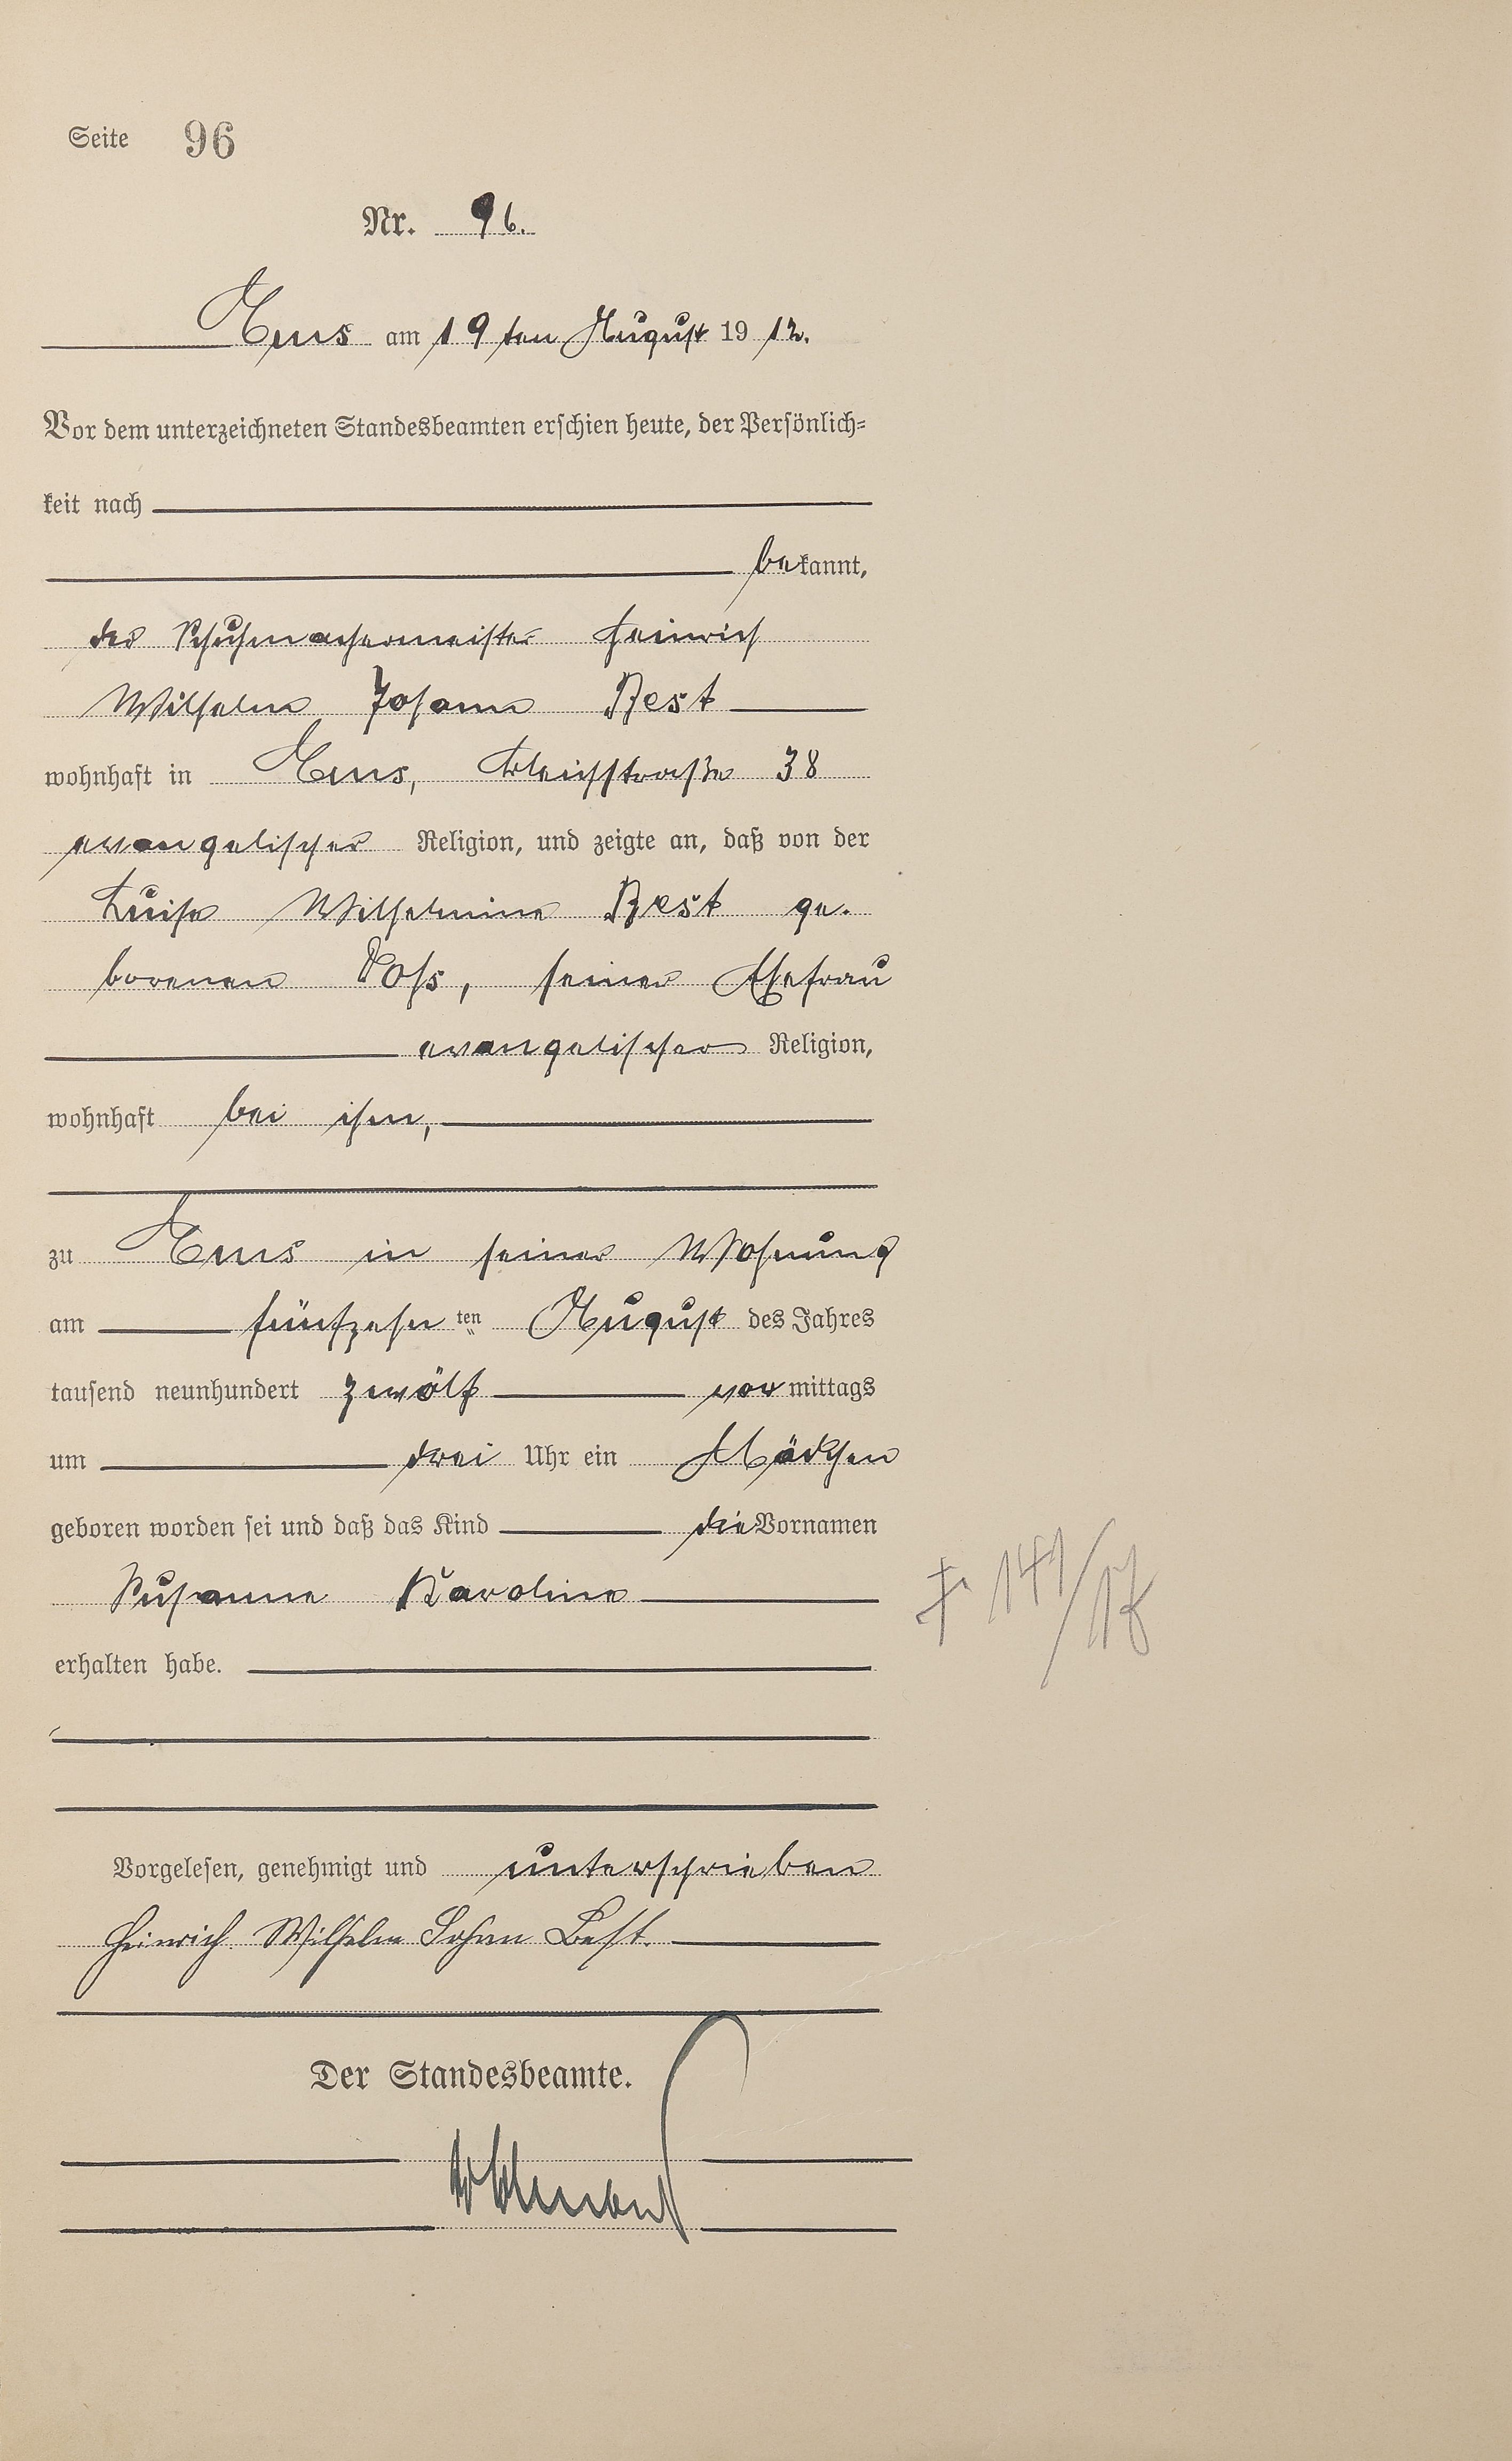 Seite 96
Nr. 96.
Ems am 19ten August 1912.
Vor dem unterzeichneten Standesbeamten erschien heute, der Persönlich=
keit nach
bekannt,
der Schuhmachermeister Heinrich
Wilhelm Johann Best
wohnhaft in Ems, 38
evangelischer Religion, und zeigte an, daß von der
Luise Wilhelmine Best ge.
borenen Voß, seiner Ehefrau
evangelischer Religion,
wohnhaft bei ihm,
zu Ems in seiner Wohnung
am fünfzehnten August des Jahres
tausend neunhundert zwölf vormittags
um drei Uhr ein Mädchen
geboren worden sei und daß das Kind die Vornamen
Susanne Karoline
† 141/17
erhalten habe.
Vorgelesen, genehmigt und unterschrieben
Heinrich Wilhelm Johann Best.
Der Standesbeamte.